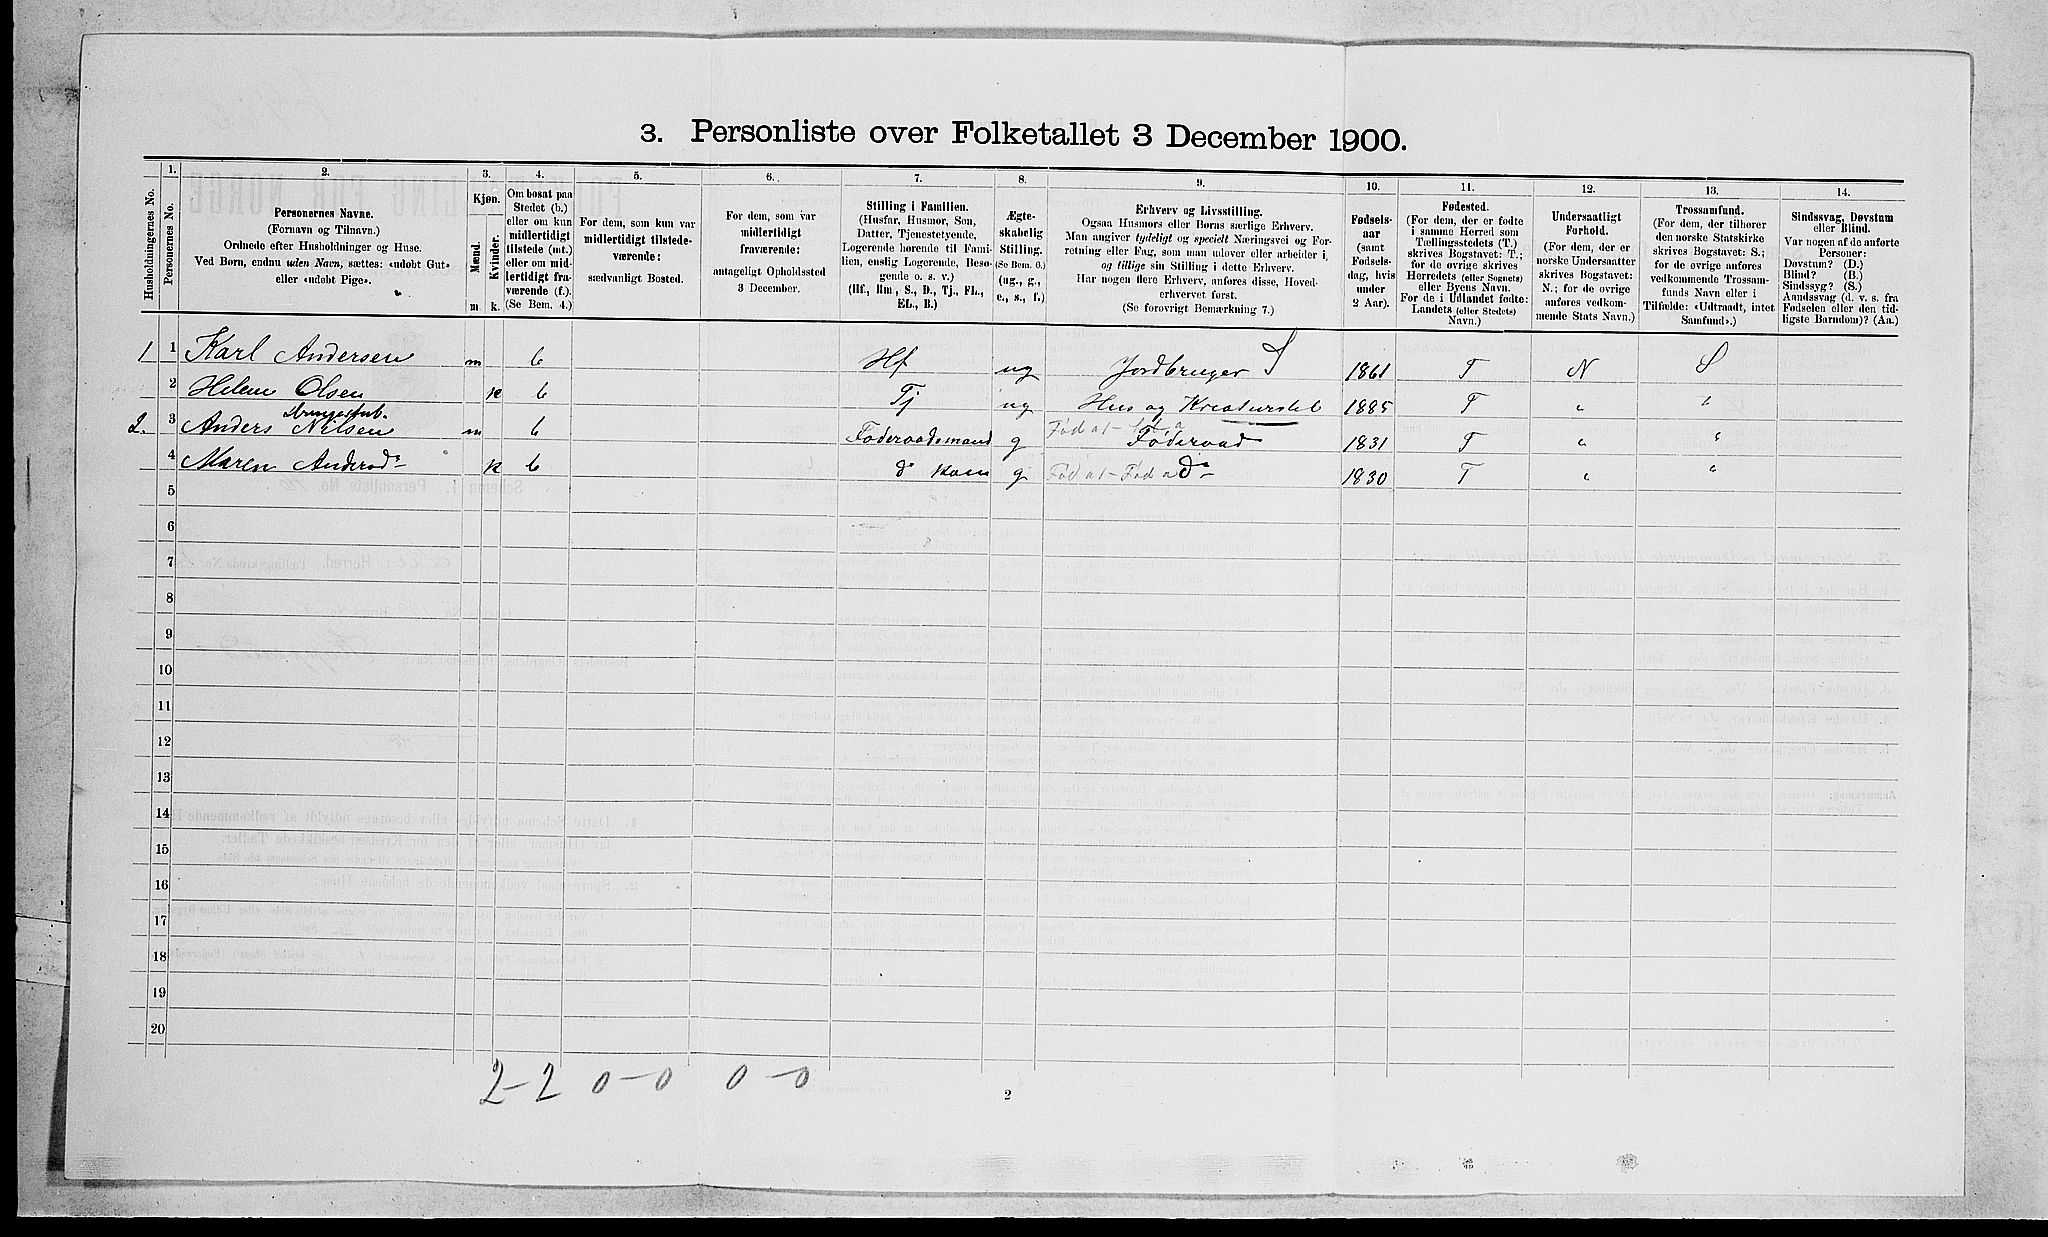 3. Personliste over Folketallet 3 December 1900.
Husholdningernes No.
1. Personernes No.
2. Personernes Navne.
(Fornavn og Tilnavn.)
Ordnede efter Husholdninger og Huse.
Ved Børn, endnu uden Navn, sættes: «udøbt Gut»
eller «udøbt Pige».
3. Kjøn.
Mænd. m.
Kvinder. k.
4. Om bosat paa
Stedet (b.)
eller om kun
midlertidigt
tilstede (mt.)
eller om mid-
lertidigt fra-
værende (f.).
(Se Bem. 4.)
5. For dem, som kun var
midlertidigt tilstede-
værende:
sædvanligt Bosted.
6. For dem, som var
midlertidigt
fraværende:
antageligt Opholdssted
3 December.
7. Stilling i Familien.
(Husfar, Husmor, Søn,
Datter, Tjenestetyende,
Logerende hørende til Fami-
lien, enslig Logerende, Besø-
gende o. s. v.)
(Hf., Hm., S., D., Tj., FL.,
EL., B.)
8. Ægte-
skabelig
Stilling.
(Se Bem. 6.)
(ug., g.,
e., s., f.)
9. Erhverv og Livsstilling.
Ogsaa Husmors eller Børns særlige Erhverv.
Man angiver tydeligt og specielt Næringsvei og For-
retning eller Fag, som man udøver eller arbeider i,
og tillige sin Stilling i dette Erhverv.
Har nogen flere Erhverv, anføres disse, Hoved-
erhvervet først.
(Se forøvrigt Bemærkning 7.)
10. Fødsels-
aar
(samt
Fødsels-
dag, hvis
under
2 Aar).
11. Fødested.
(For dem, der er fødte
i samme Herred som
Tællingsstedets (T.)
skrives Bogstavet: T.;
for de øvrige skrives
Herredets (eller Sognets)
eller Byens Navn.
For de i Udlandet fødte:
Landets (eller Stedets)
Navn.)
12. Undersaatligt
Forhold.
(For dem, der er
norske Undersaatter
skrives Bogstavet:
N.; for de øvrige
anføres vedkom-
mende Stats Navn.)
13. Trossamfund.
(For dem, der tilhører
den norske Statskirke
skrives Bogstavet: S.;
for de øvrige anføres
vedkommende Trossam-
funds Navn eller i
Tilfælde: «Udtraadt, intet
Samfund».)
14. Sindssvag, Døvstum
eller Blind.
Var nogen af de anførte
Personer:
Døvstum? (D.)
Blind? (B.)
Sindssyg? (S.)
Aandssvag (d. v. s. fra
Fødselen eller den tid-
ligste Barndom)? (Aa.)
1 1 Karl Andersen m b Hf ug Jordbruger S 1861 T N S
2 Helene Olsen k b Tj ug Hus og Kreaturstel 1885 T " "
2. 3 Anders Nilsen m b Føderaadsmand g Føderaad 1831 T " "
4 Maren Andersdr k b do Kone g do 1830 T " "
5
6
7
8
9
10
11
12
13
14
15
16
17
18
19
20
2-2 0-0 0-0
2